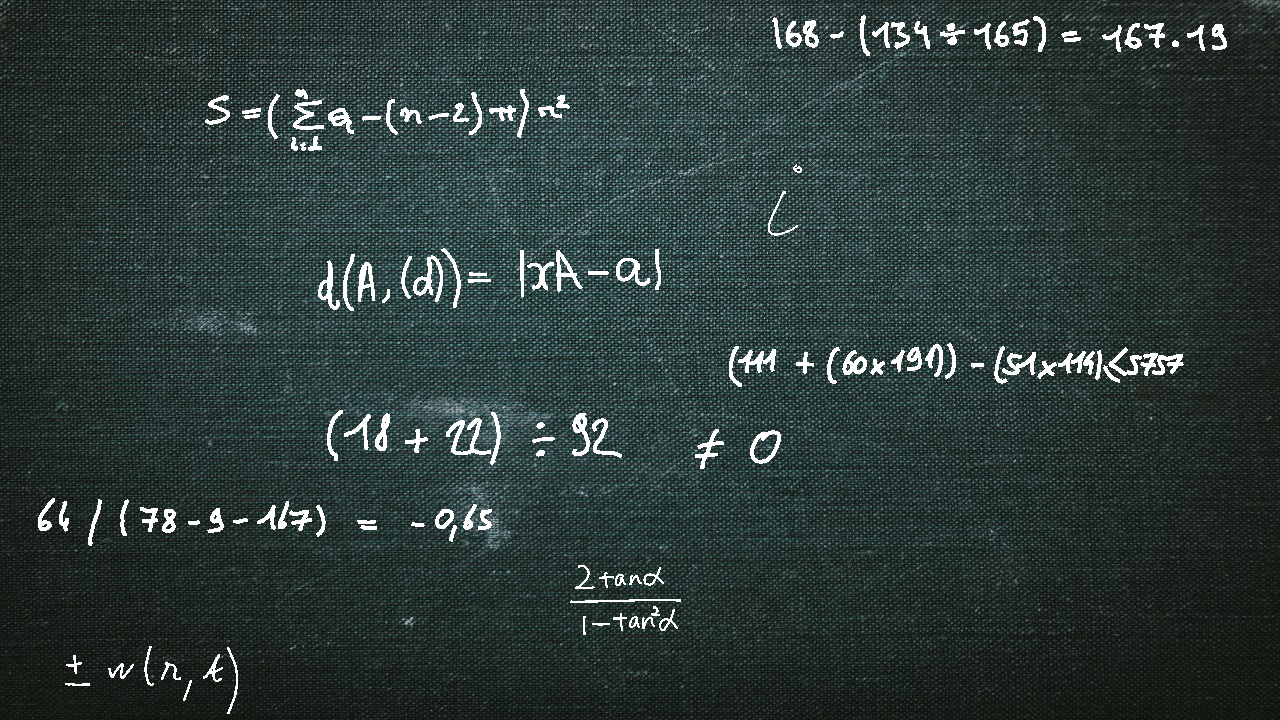 168 - (134 ÷ 165) = 167.19
S = (∑ⁿᵢ₌₁ a - (n - 2) π) r²
i
d(A, (d)) = |xA - a|
(111 + (60 x 191)) - (51 x 114) < 5757
(18 + 22) ÷ 92 ≠ 0
64 / (78 - 9 - 167) = - 0,65
2 tanα
1 - tan²α
± w(r, t)